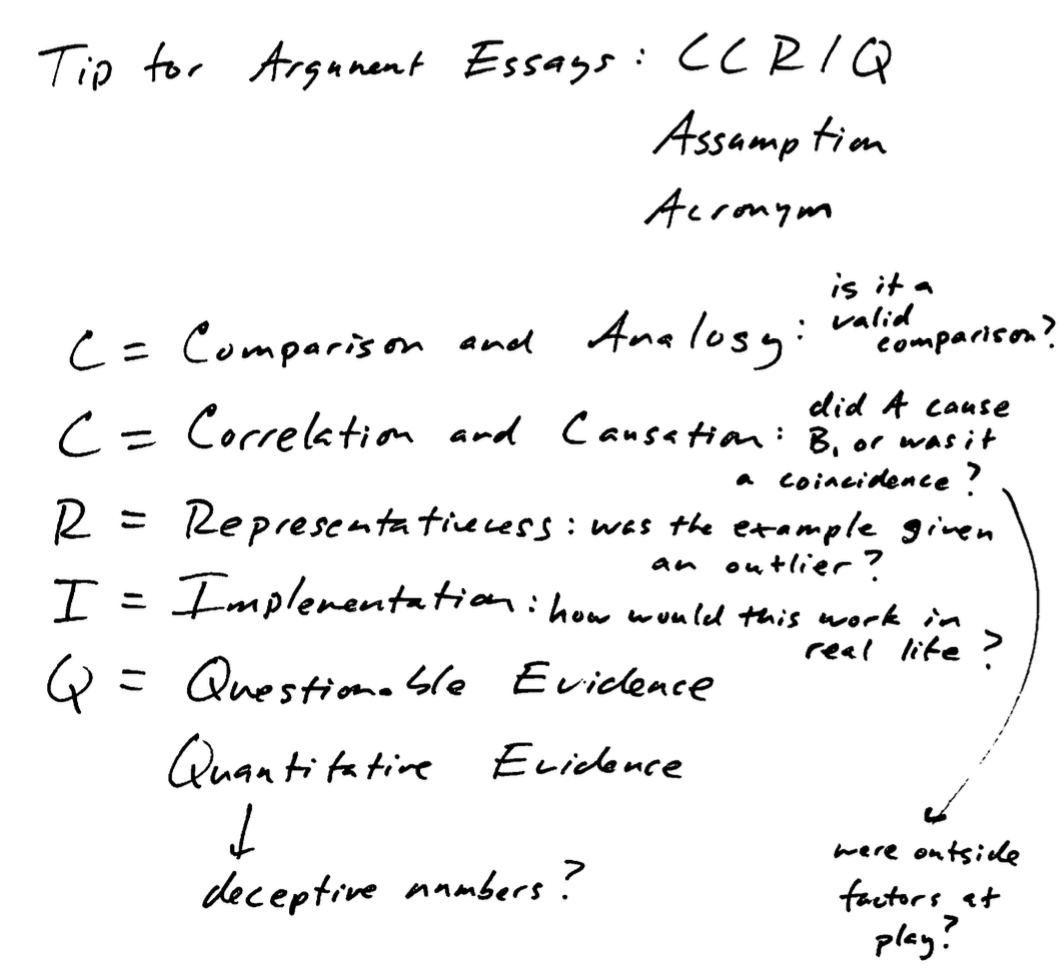 Tip for Argument Essays: CCRIQ
Assumption
Acronym
C = Comparison and Analogy: is it a
valid
comparison?
C = Correlation and Causation: did A cause
B, or was it
a coincidence?
R = Representativeness: was the example given
an outlier?
I = Implementation: how would this work in
real life?
Q = Questionable Evidence
Quantitative Evidence
deceptive numbers?
were outside
factors at
play?